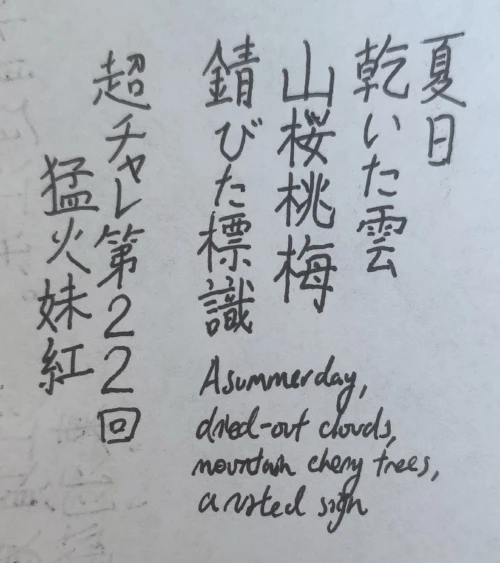 夏日
乾いた雲
山桜桃梅
錆びた標識
超チャレ第22回
猛火妹紅
A summer day,
dried-out clouds,
mountain cherry trees,
a rusted sign